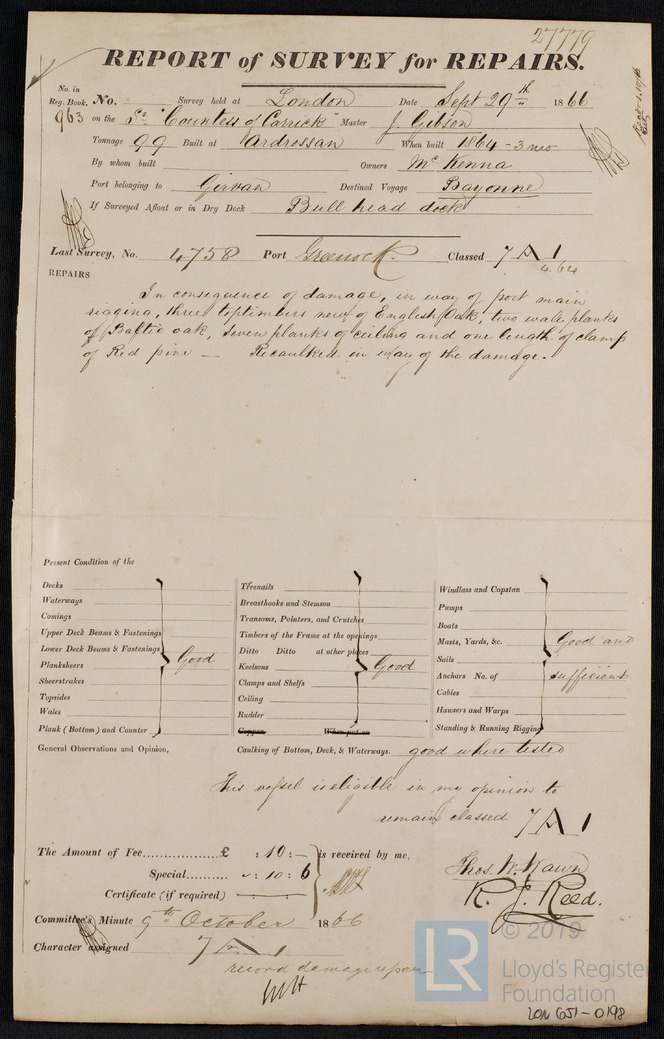 27779
REPORT of SURVEY for REPAIRS.
No. in Reg. Book. No. Survey held at London Date Sept 29th 1866
963 on the Sr "Countess of Carrick" Master J. Gibson
Tonnage 99 Built at Ardrossan When built 1864 - 3 mo
By whom built Owners McKenna
Port belonging to Girvan Destined Voyage Bayonne
If Surveyed Afloat or in Dry Dock Bull head dock
Last Survey, No. 4758 Port Greenock Classed 7 A 1
4.64
REPAIRS
In consequence of damage, in way of port main
rigging, three toptimbers new of English Oak, two wale planks
of Baltic oak, seven planks of ceiling and one length of clamp
of Red pine — Recaulked in way of the damage.
Present Condition of the
Decks
Waterways
Comings
Upper Deck Beams & Fastenings
Lower Deck Beams & Fastenings
Planksheers
Sheerstrakes
Topsides
Wales
Plank (Bottom) and Counter
Good
Treenails
Breasthooks and Stemson
Transoms, Pointers, and Crutches
Timbers of the Frame at the openings
Ditto Ditto at other places
Keelsons
Clamps and Shelfs
Ceiling
Rudder
Copper When put on
Good
Windlass and Capstan
Pumps
Boats
Masts, Yards, &c.
Sails
Anchors No. of
Cables
Hawsers and Warps
Standing & Running Rigging
Good and
sufficient
General Observations and Opinion, Caulking of Bottom, Deck, & Waterways. good where tested
This vessel is eligible in my opinion to
remain classed 7 A 1
The Amount of Fee.................£ : 10 : — is received by me,
Special......... : 10 : 6
Certificate (if required)
Thos. W. Wawn
R. J. Reed.
Committee's Minute 9th October 1866
Character assigned 7 A 1
record damage repair
© 2019
LR
Lloyd's Register
Foundation
LON 651-0198